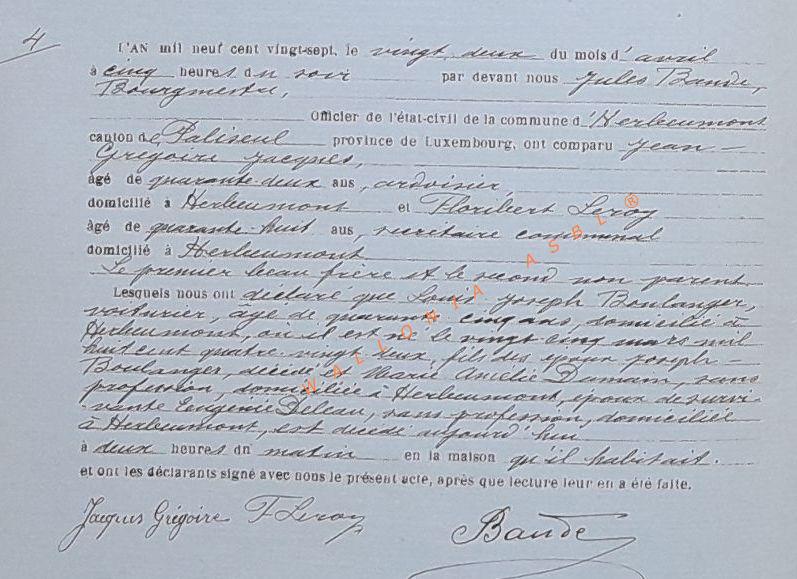 4
L'AN mil neuf cent vingt-sept, le vingt deux du mois d'avril
à cinq heures du soir par devant nous Jules Bande,
Bourgmestre,
Officier de l'état-civil de la commune d'Herbeumont
canton de Paliseul province de Luxembourg, ont comparu Jean-
Grégoire Jacques,
âgé de quarante-deux ans, ardoisier,
domicilié à Herbeumont et Floribert Leroy
âgé de quarante-huit ans, secrétaire communal
domicilié à Herbeumont
Le premier beau frère et le second non parent
Lesquels nous ont déclaré que Louis Joseph Boulanger,
voiturier, âgé de quarante cinq ans, domicilié à
Herbeumont, où il est né le vingt cinq mars mil
huit cent quatre vingt deux, fils des époux Joseph-
Boulanger, décédé et Marie Amélie Dumam, sans
profession, domiciliée à Herbeumont, époux de survi-
vante Eugénie Deleau, sans profession, domiciliée
à Herbeumont, est décédé aujourd'hui
à deux heures du matin en la maison qu'il habitait.
et ont les déclarants signé avec nous le présent acte, après que lecture leur en a été faite.
Jacques Grégoire F Leroy Bande
WALLONIA ASBL ®